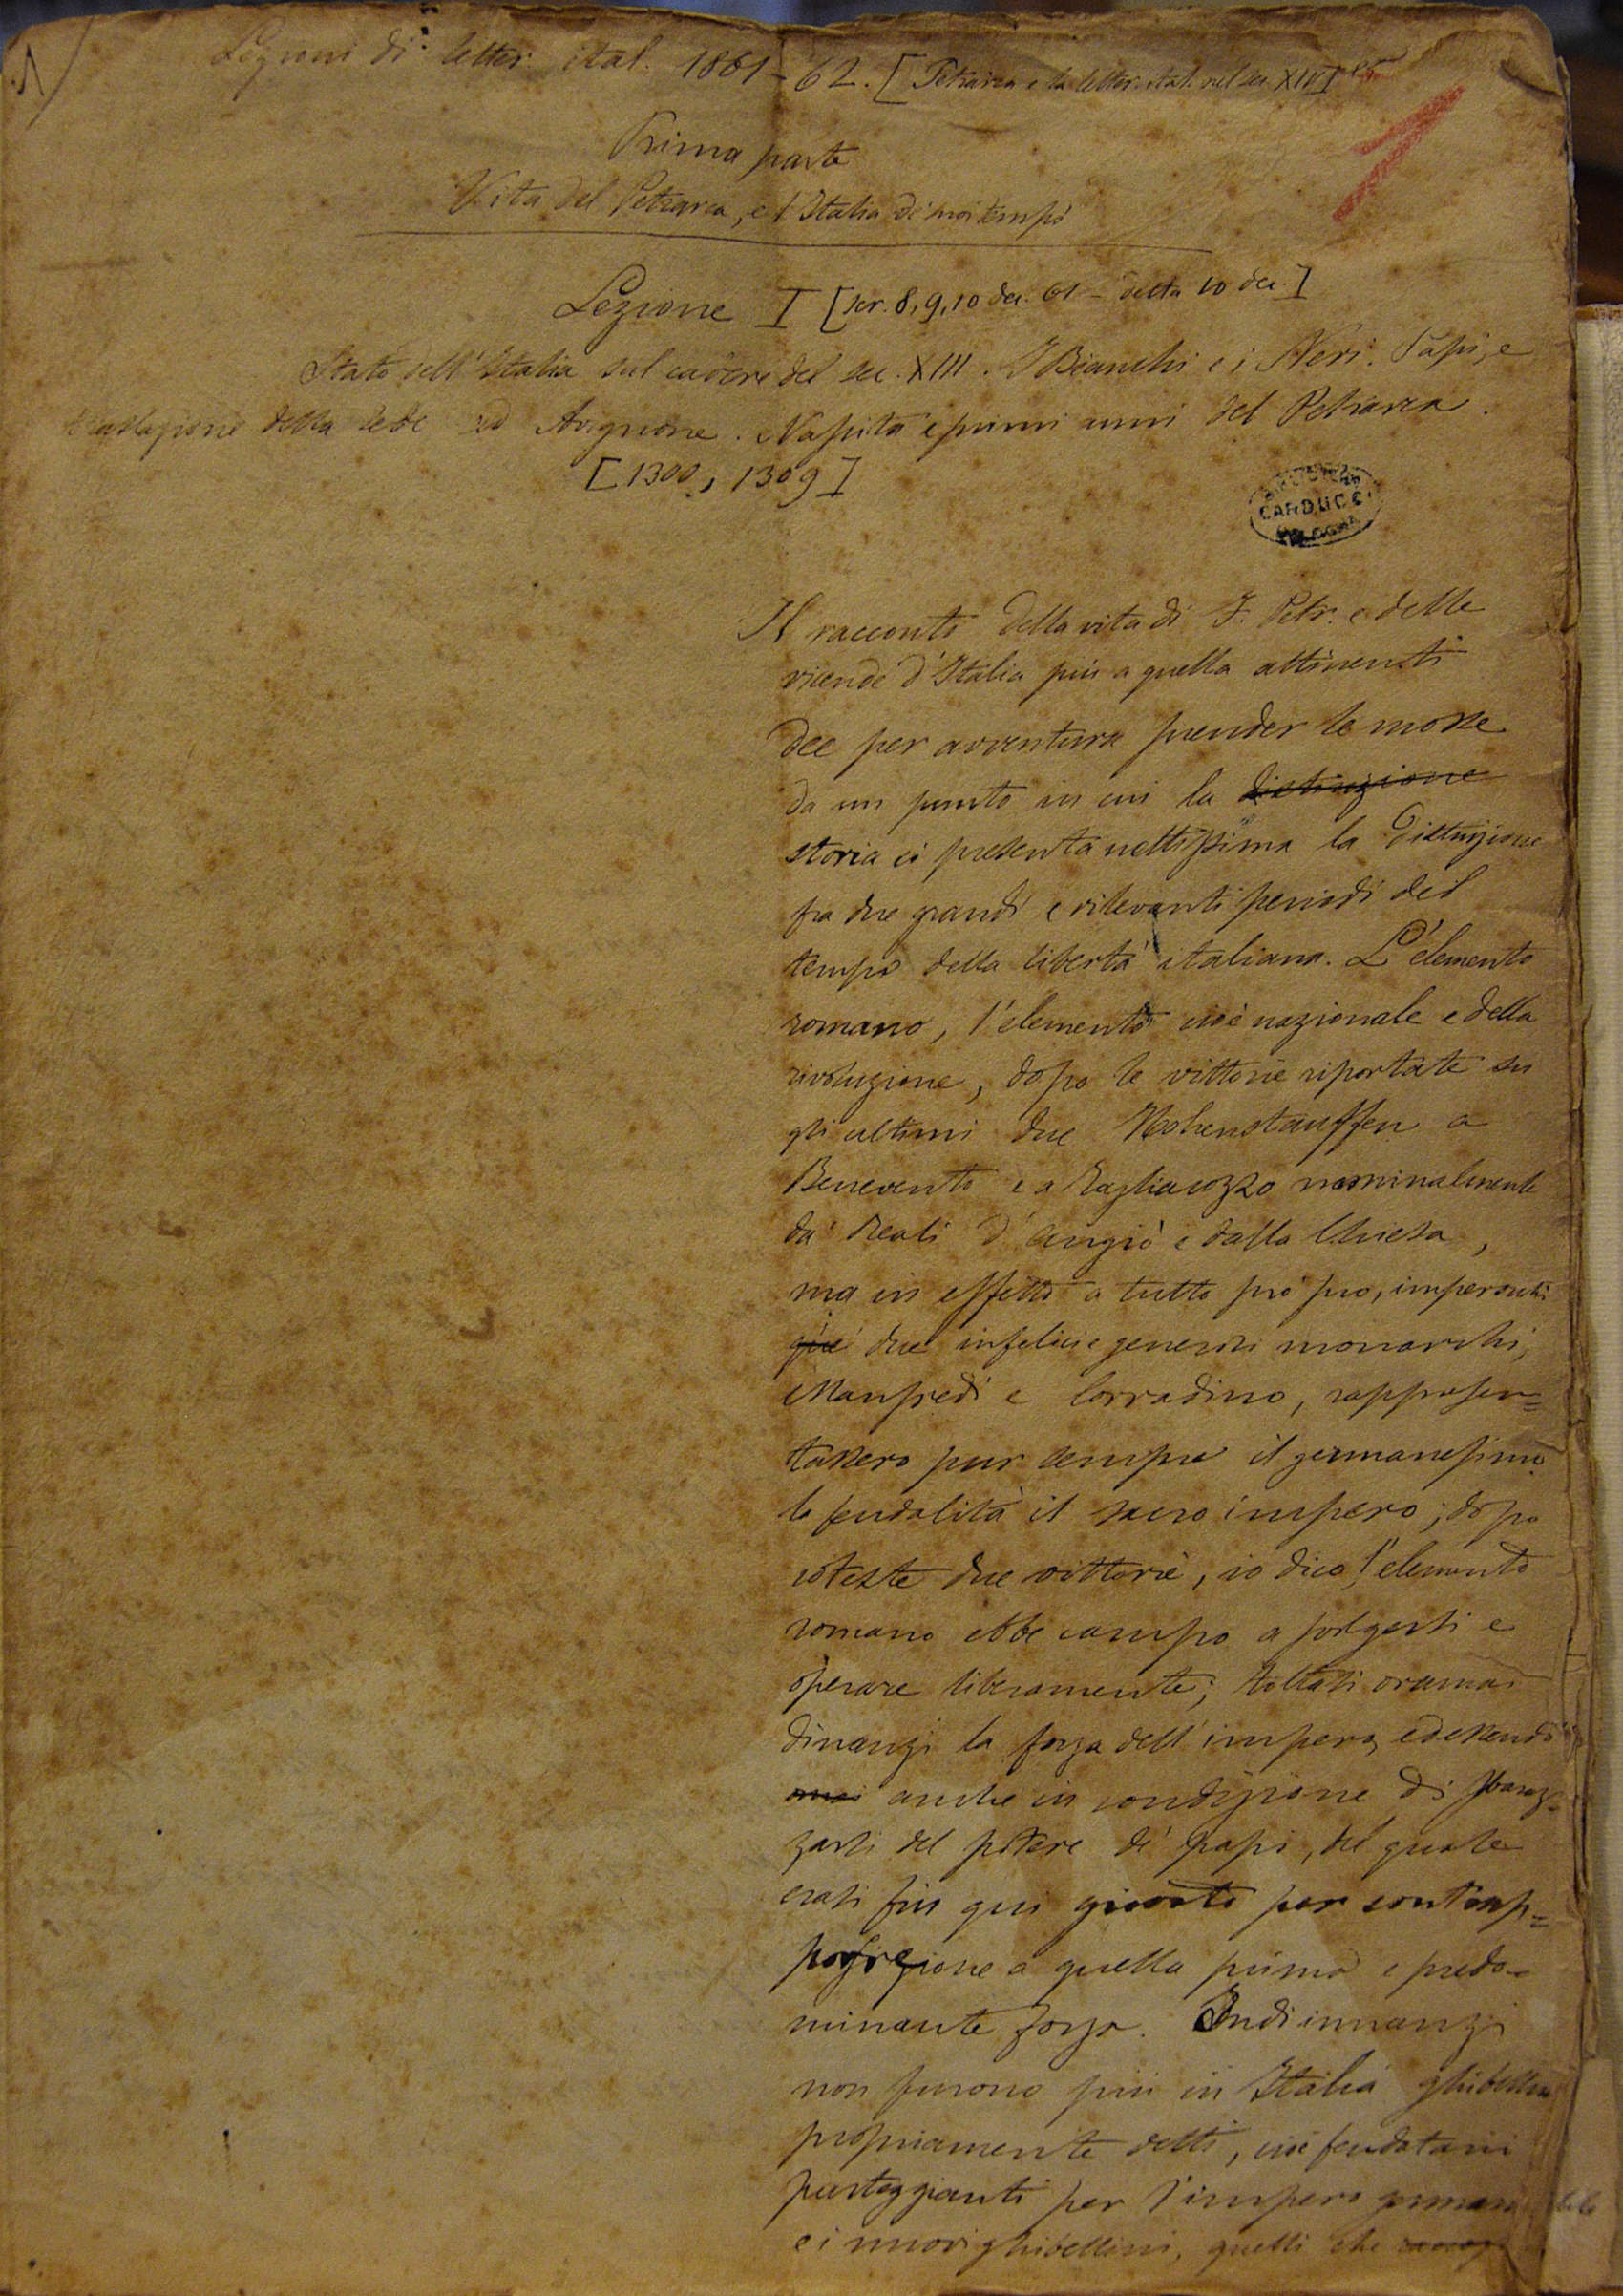 1
Lezioni di letter. ital. 1861-62. [Petrarca e la letter. ital. nel sec. XIV]
Prima parte
Vita del Petrarca, e l'Italia de' suoi tempi
Lezione I [scr. 8, 9, 10 dec. 61 - detta 10 dec.]
Stato dell'Italia sul cadere del sec. XIII. I Bianchi e i Neri. Papi, e
traslazione della sede ad Avignone. Nascita e primi anni del Petrarca.
[1300, 1309]
CARDUCCI
BOLOGNA
Il racconto della vita di F. Petr. e delle
vicende d'Italia più a quella attinenti
dee per avventura prender le mosse
da un punto in cui la distinzione
storia ci presenta nettissima la distinzione
fra due grandi e rilevanti periodi del
tempo della libertà italiana. L'elemento
romano, l'elemento cioè nazionale e della
rivoluzione, dopo le vittorie riportate su
gli ultimi due Hohenstauffen a
Benevento e a Tagliacozzo nominalmente
da' Reali d'Angiò e dalla Chiesa,
ma in effetto a tutto pro' suo, imperocchè
que' due infelici e generosi monarchi,
Manfredi e Corradino, rappresen=
tassero pur sempre il germanesimo
la feudalità il sacro impero; dopo
coteste due vittorie, io dico, l'elemento
romano ebbe campo a svolgersi e
operare liberamente; toltasi oramai
dinanzi la forza dell'impero, ed essendo
omai anche in condizione di sbaraz=
zarsi del potere de' papi, del quale
erasi fin qui giovato per contrap=
posizione a quella prima e predo=
minante forza. Indi innanzi
non furono più in Italia ghibellini
propriamente detti, cioè feudatarii
parteggianti per l'impero
e i nuovi ghibellini, quelli che